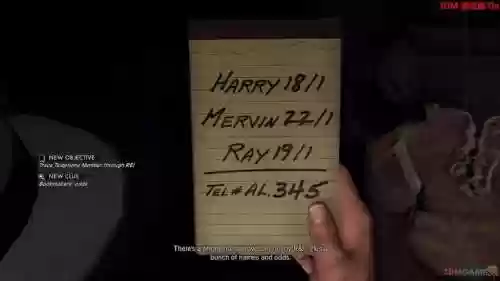 HARRY 18/1
MERVIN 22/1
RAY 19/1
TEL# AL. 345
NEW OBJECTIVE
Trace Telephone Number through R&I
NEW CLUE
Bookmakers' odds
There's a phone number
bunch of names and odds.